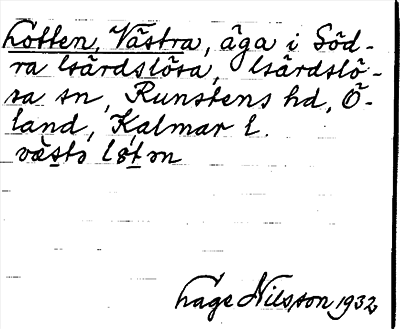 Lotten, Västra, äga i Söd-
ra Gärdslösa, Gärdslö-
sa sn, Runstens hd, Ö-
land, Kalmar l.
västo lotɔn
Hage Nilsson 1932